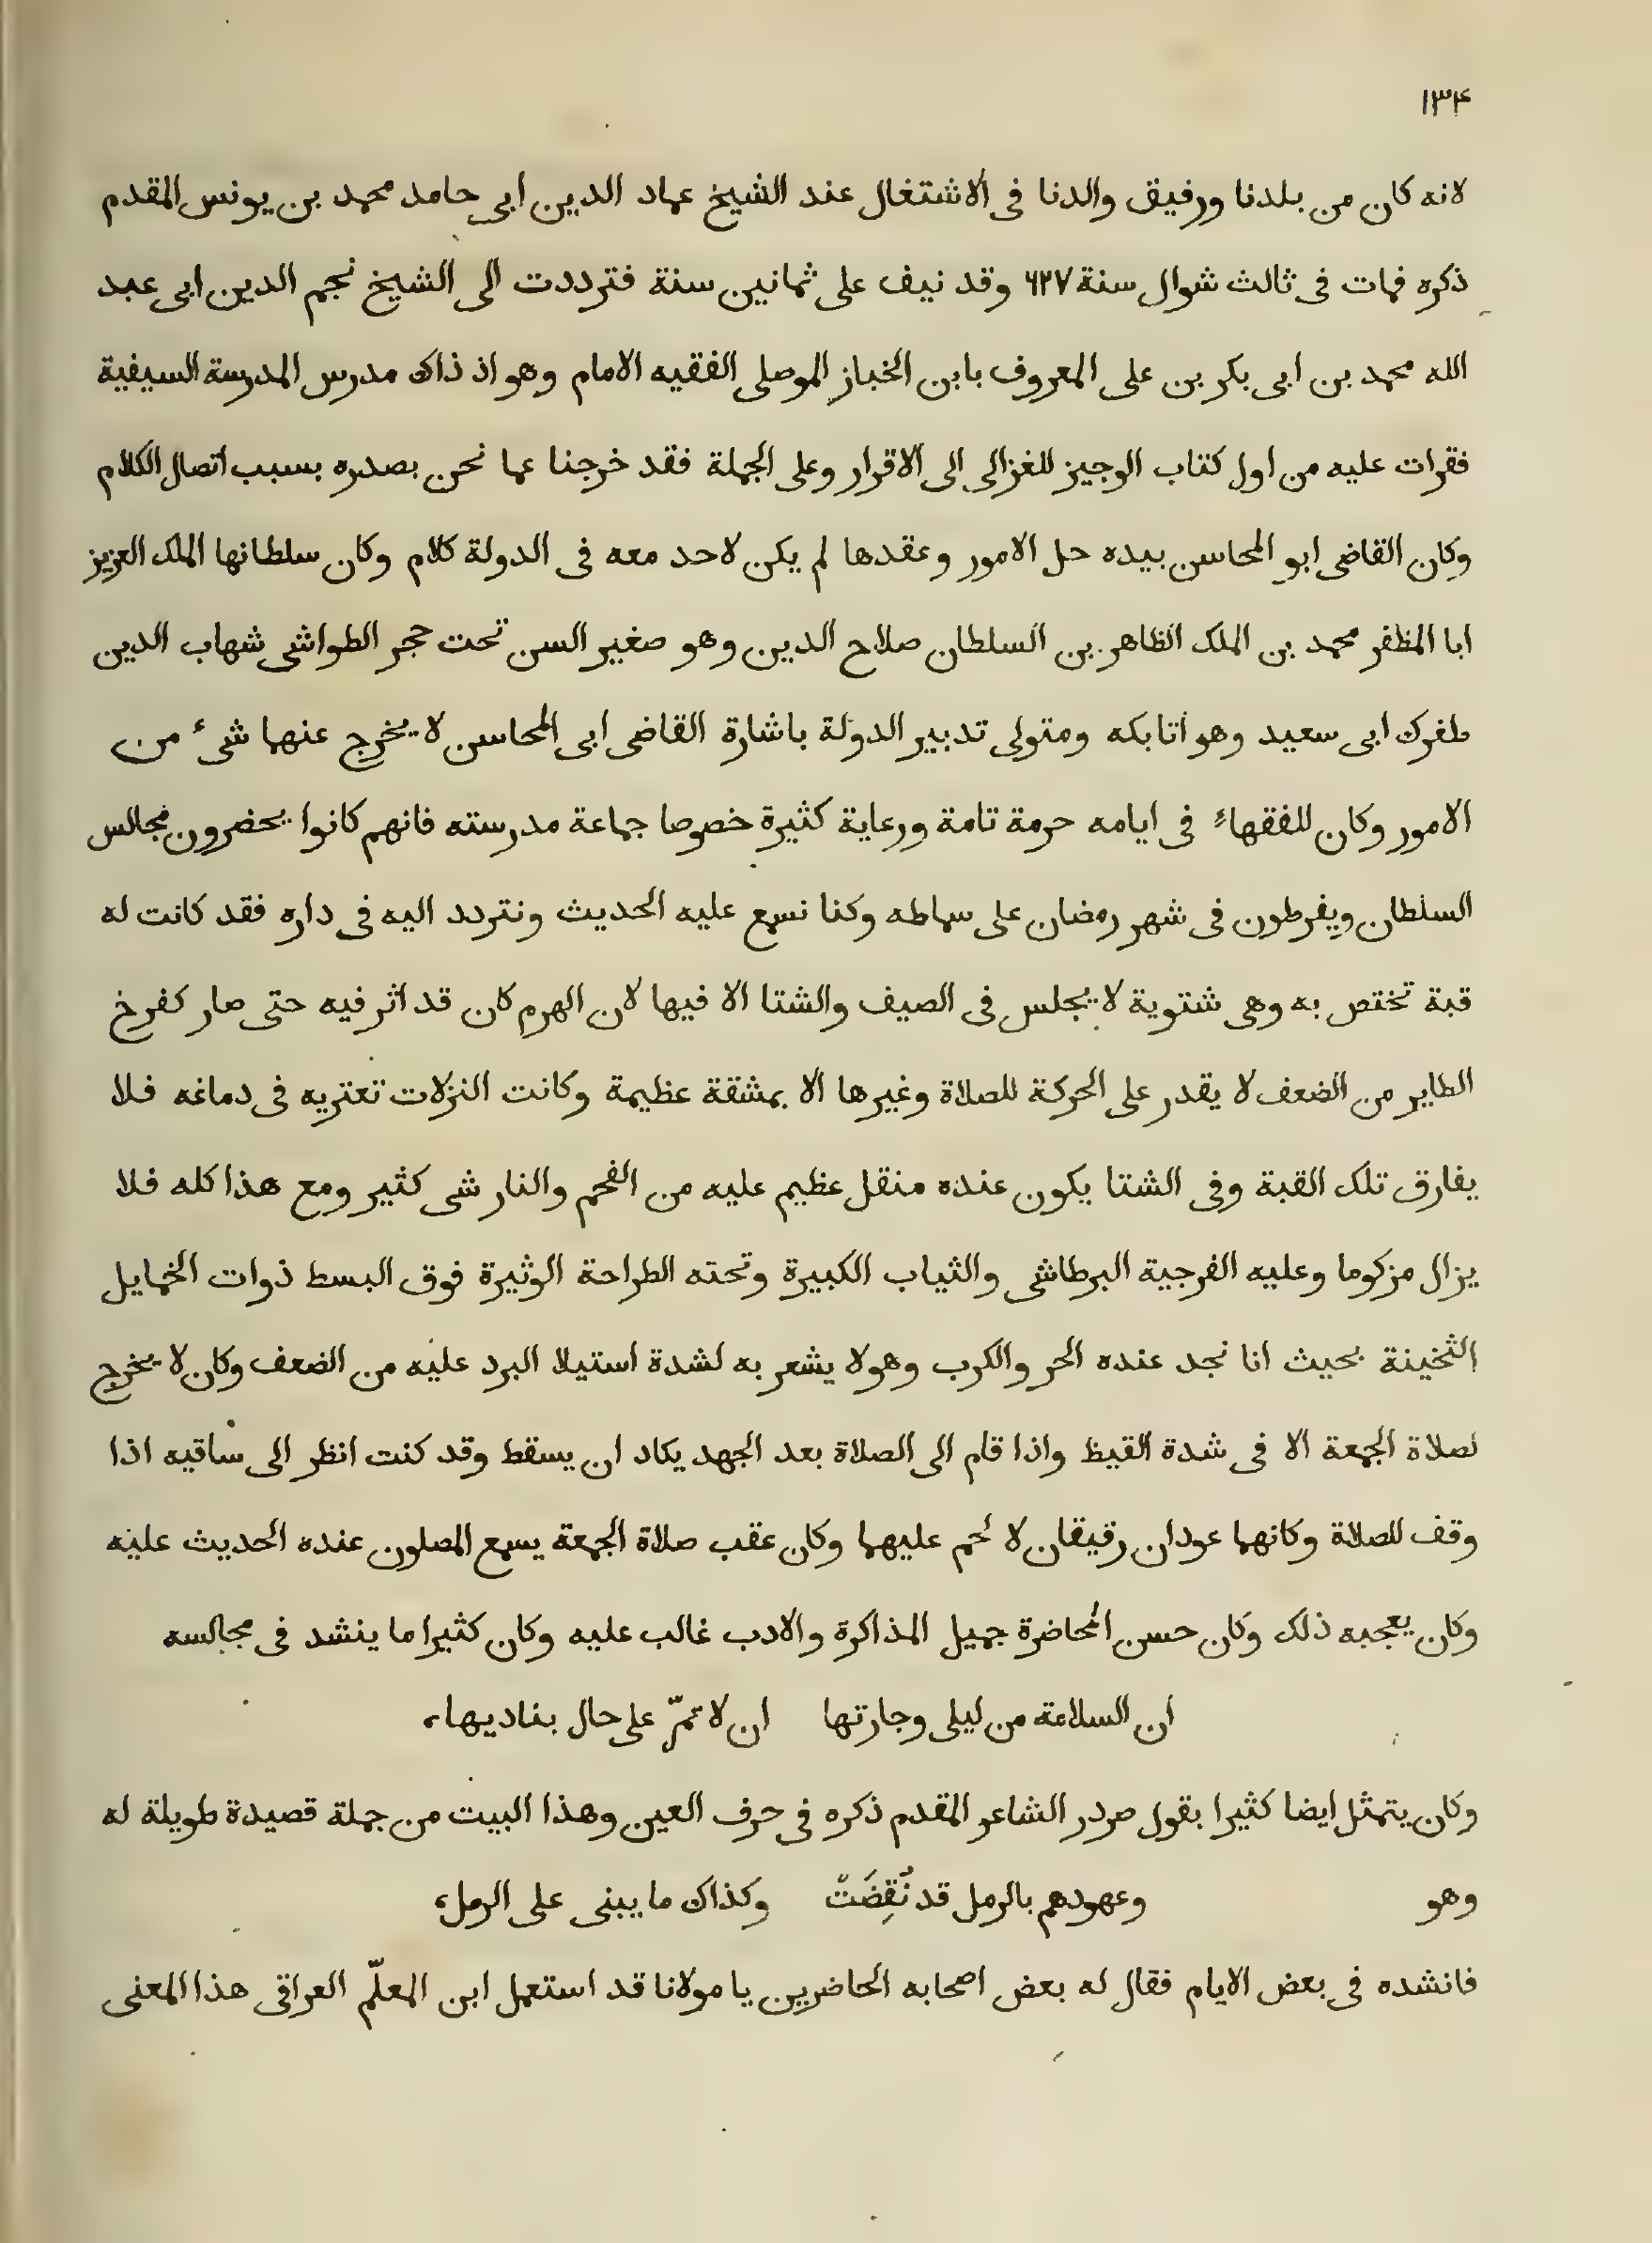 ١٣۴
لانه كان من بلدنا ورفيق والدنا فى الاشتغال عند الشيخ عماد الدين ابى حامد محمد بن يونس المقدم
ذكره فمات فى ثالث شوال سنة ٦٢٧ وقد نيف على ثمانين سنة فترددت الى الشيخ نجم الدين ابى عبد
الله محمد بن ابى بكر بن على المعروف بابن الخباز الموصلى الفقيه الامام وهو اذ ذاك مدرس المدرسة السيفية
فقرات عليه من اول كتاب الوجيز للغزالى الى الاقرار وعلى الجملة فقد خرجنا عما نحن بصدره بسبب اتصال الكلام
وكان القاضى ابو المحاسن بيده حل الامور وعقدها لم يكن لاحد معه فى الدولة كلام وكان سلطانها الملك العزيز
ابا المظفر محمد بن الملك الظاهر بن السلطان صلاح الدين وهو صغير السن تحت حجر الطواشى شهاب الدين
طغرك ابى سعيد وهو اتابكه ومتولى تدبير الدولة باشارة القاضى ابى المحاسن لا يخرج عنهما شىء من
الامور وكان للفقهاء فى ايامه حرمة تامة ورعاية كثيرة خصوصا جماعة مدرسته فانهم كانوا يحضرون مجالس
السلطان ويفرطون فى شهر رمضان على سماطه وكنا نسمع عليه الحديث ونتردد اليه فى داره فقد كانت له
قبة تختص به وهى شتوية لا يجلس فى الصيف والشتا الا فيها لان الهرم كان قد اثر فيه حتى صار كفرخ
الطاير من الضعف لا يقدر على الحركة للصلاة وغيرها الا بمشقة عظيمة وكانت النزلات تعتريه فى دماغه فلا
يفارق تلك القبة وفى الشتا يكون عنده منقل عظيم عليه من الفحم والنار شى كثير ومع هذا كله فلا
يزال مزكوما وعليه الفرجية البرطاشى والثياب الكبيرة وتحته الطراحة الوثيرة فوق البسط ذوات الخمايل
الثخينة بحيث انا نجد عنده الحر والكرب وهو لا يشعر به لشدة استيلا البرد عليه من الضعف وكان لا يخرج
لصلاة الجمعة الا فى شدة القيظ واذا قام الى الصلاة بعد الجهد يكاد ان يسقط وقد كنت انظر الى ساقيه اذا
وقف للصلاة وكانهما عودان رقيقان لا لحم عليهما وكان عقب صلاة الجمعة يسمع المصلون عنده الحديث عليه
وكان يعجبه ذلك وكان حسن المحاضرة جميل المذاكرة والادب غالب عليه وكان كثيرا ما ينشد فى مجالسه
ان السلامة من ليلى وجارتها ان لا تمرّ على حال بناديها،
وكان يتمثل ايضا كثيرا بقول صردر الشاعر المقدم ذكره فى حرف العين وهذا البيت من جملة قصيدة طويلة له
وهو وعهودهم بالرمل قد نُقِضَتْ وكذاك ما يبنى على الرمل،
فانشده فى بعض الايام فقال له بعض اصحابه الحاضرين يا مولانا قد استعمل ابن المعلّم العراقى هذا المعنى